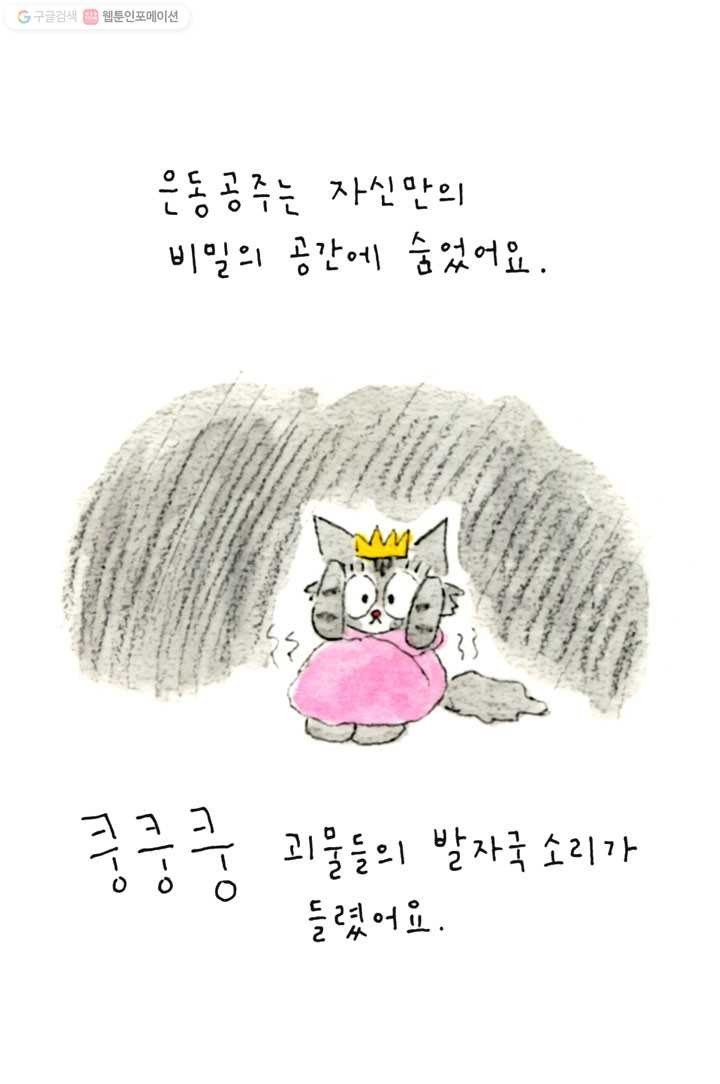 구글검색 웹툰인포메이션
은동공주는 자신만의
비밀의 공간에 숨었어요.
쿵쿵쿵 괴물들의 발자국 소리가
들렸어요.